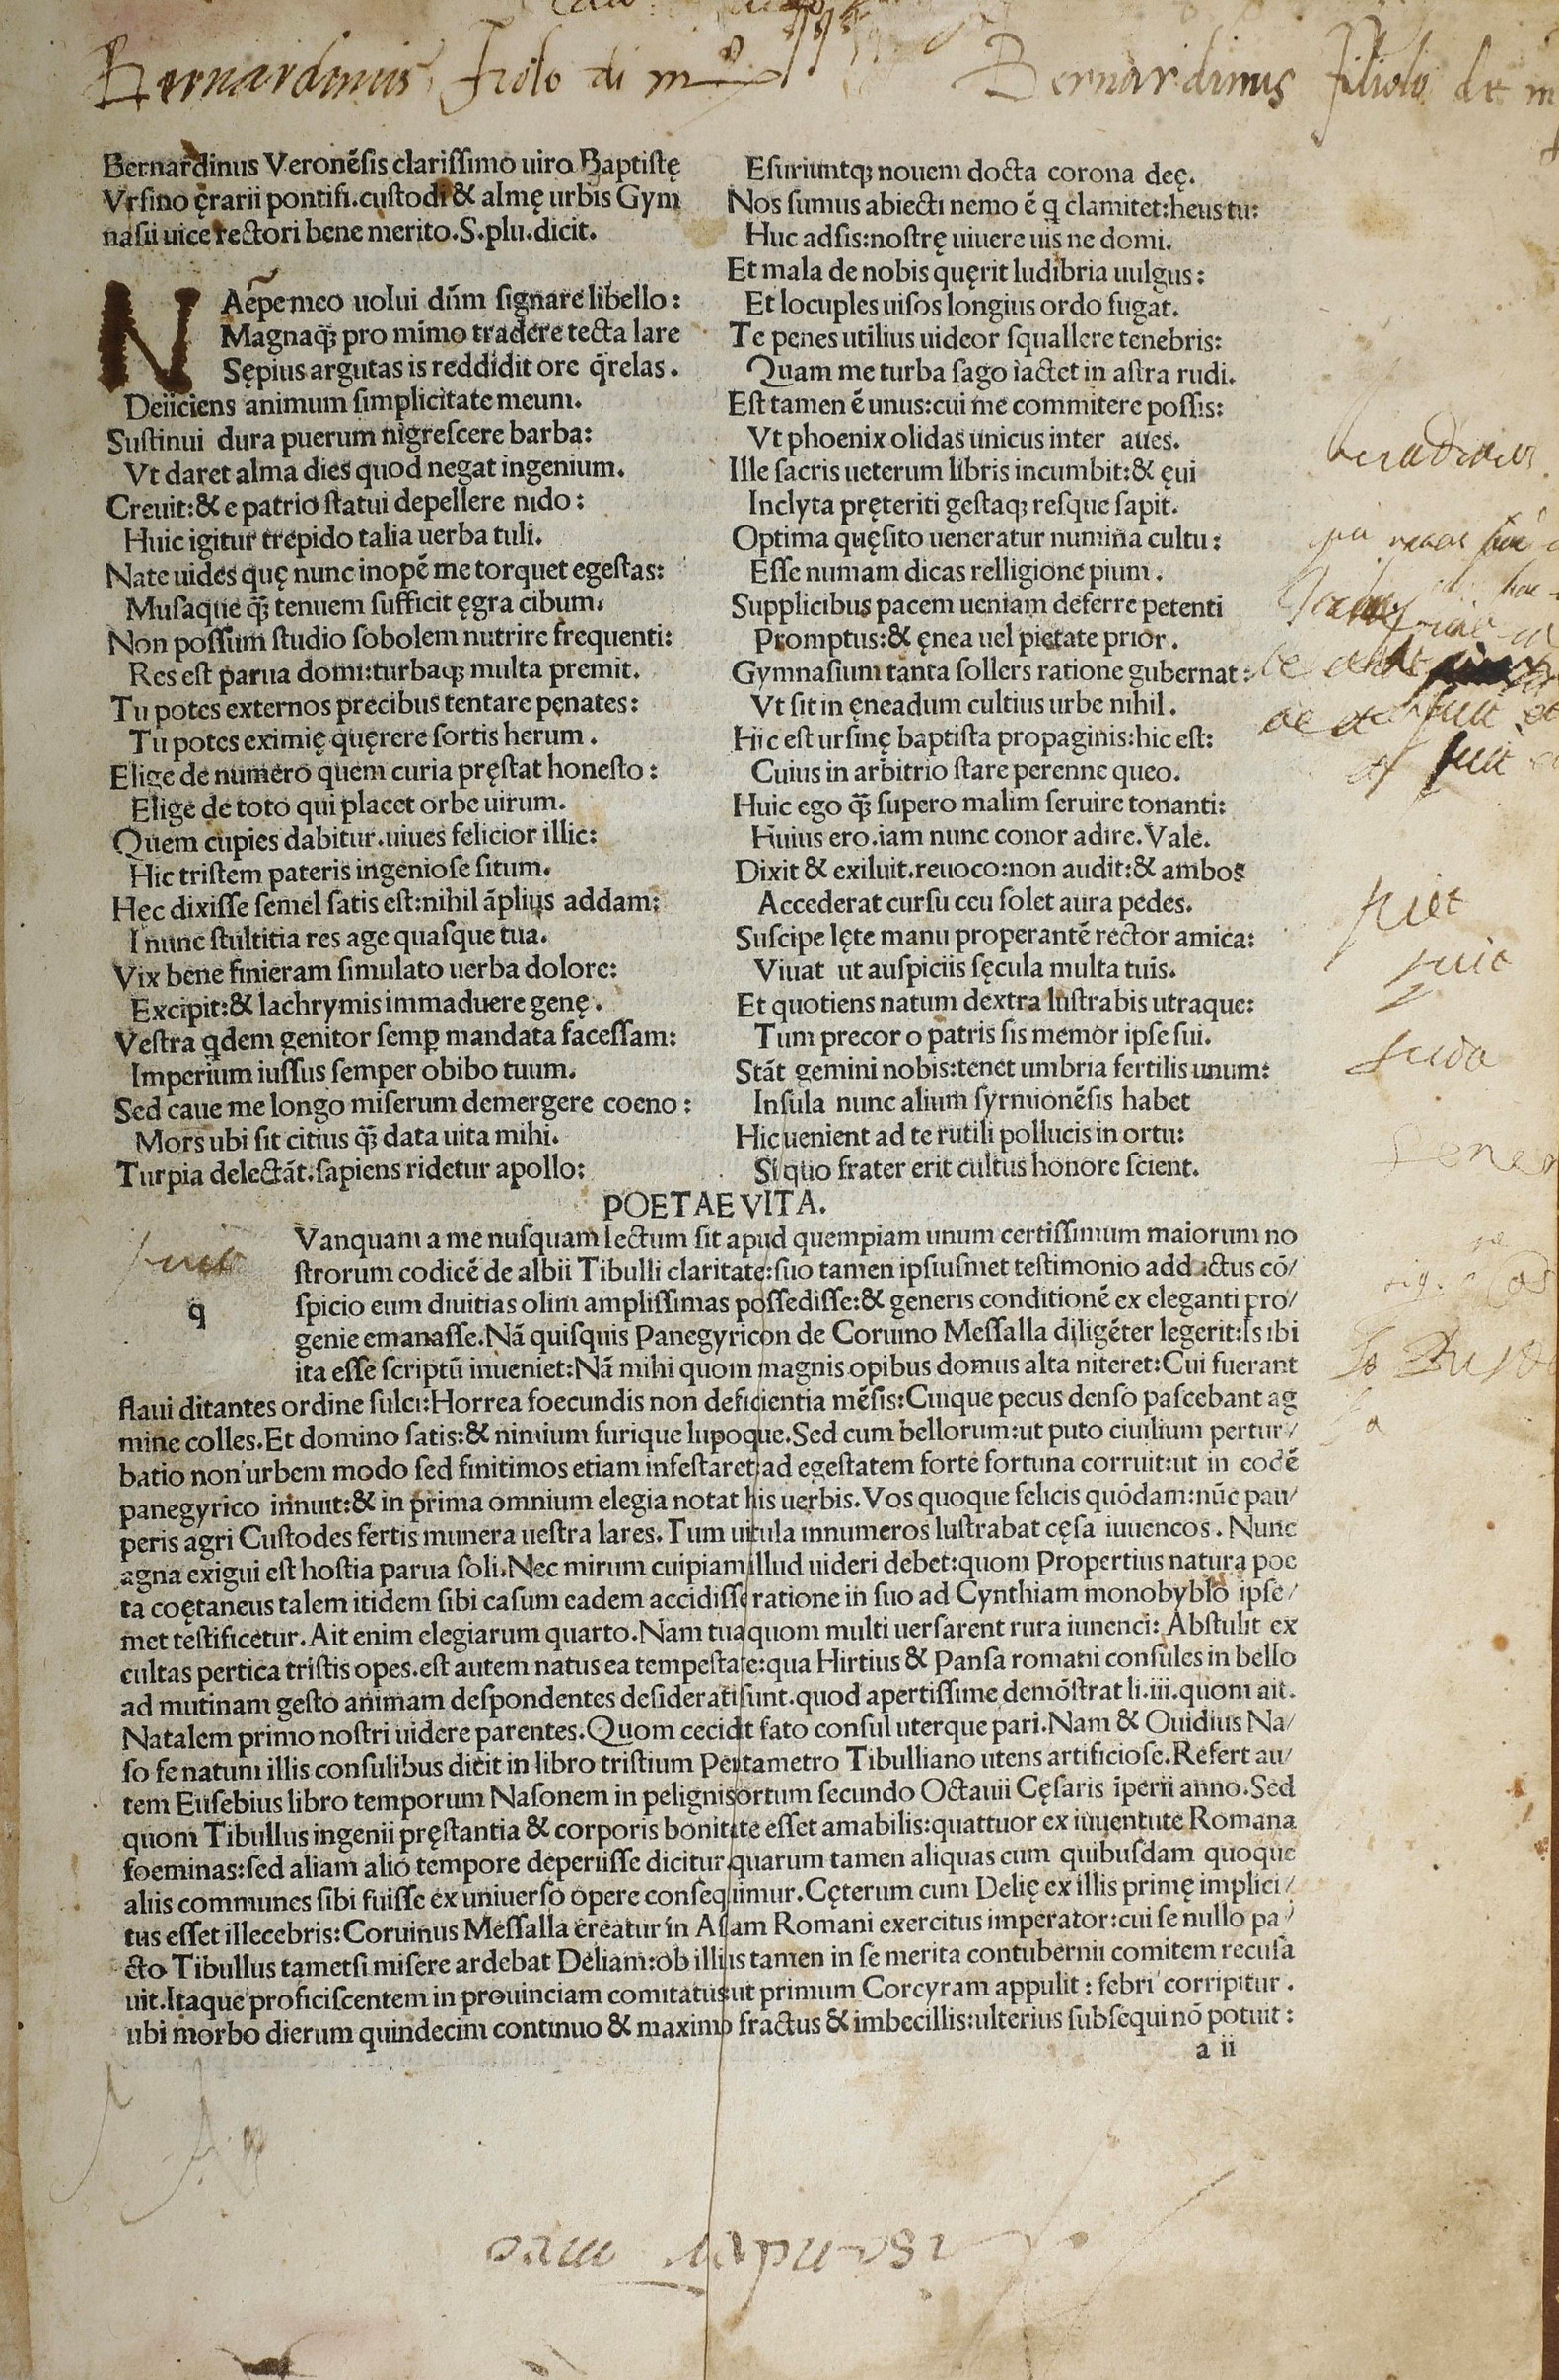 Bernardinus Filolo di m
Bernardinus Filiolo de m
Bernardinus Veronēſis clariſſimo uiro Baptiſtę
Vrſino ęrarii pontifi.cuſtodi & almę urbis Gym
naſii uice rectori bene merito.S.plu.dicit.
N Aēpe meo uolui dñm ſignare libello:
Magnaq̄; pro minīo tradere tecta lare
Sępius argutas is reddidit ore q̄relas.
Deiiciens animum ſimplicitate meum.
Suſtinui dura puerum nigreſcere barba:
Vt daret alma dies quod negat ingenium.
Creuit:& e patrio ſtatui depellere nido:
Huic igitur trepido talia uerba tuli.
Nate uides quę nunc inopē me torquet egeſtas:
Muſaque q̄; tenuem ſufficit ęgra cibum.
Non poſſum ſtudio ſobolem nutrire frequenti:
Res eſt parua domi:turbaq; multa premit.
Tu potes externos precibus tentare penates:
Tu potes eximię quęrere ſortis herum.
Elige de numero quem curia pręſtat honeſto:
Elige de toto qui placet orbe uirum.
Quem cupies dabitur.uiues felicior illic:
Hic triſtem pateris ingenioſe ſitum.
Hec dixiſſe ſemel ſatis eſt:nihil āplius addam:
I nunc ſtultitia res age quaſque tua.
Vix bene finieram ſimulato uerba dolore:
Excipit:& lachrymis immaduere genę.
Veſtra qdem genitor ſemp mandata faceſſam:
Imperium iuſſus ſemper obibo tuum.
Sed caue me longo miſerum demergere coeno:
Mors ubi ſit citius q̄; data uita mihi.
Turpia delectāt:ſapiens ridetur apollo:
Eſuriuntq; nouem docta corona deę.
Nos ſumus abiecti nemo ē q clamitet:heus tu:
Huc adſis:noſtrę uiuere uis ne domi.
Et mala de nobis quęrit ludibria uulgus:
Et locuples uiſos longius ordo fugat.
Te penes utilius uideor ſquallere tenebris:
Quam me turba ſago iactet in aſtra rudi.
Eſt tamen ē unus:cui me commitere poſſis:
Vt phoenix olidas unicus inter aues.
Ille ſacris ueterum libris incumbit:& ęui
Inclyta pręteriti geſtaq; reſque ſapit.
Optima quęſito ueneratur numina cultu:
Eſſe numam dicas relligione pium.
Supplicibus pacem ueniam deferre petenti
Promptus:& ęnea uel pietate prior.
Gymnaſium tanta ſollers ratione gubernat:
Vt ſit in ęneadum cultius urbe nihil.
Hic eſt urſinę baptiſta propaginis:hic eſt:
Cuius in arbitrio ſtare perenne queo.
Huic ego q̄; ſupero malim ſeruire tonanti:
Huius ero.iam nunc conor adire.Vale.
Dixit & exiluit.reuoco:non audit:& ambos
Accederat curſu ceu ſolet aura pedes.
Suſcipe lęte manu properantē rector amica:
Viuat ut auſpiciis ſęcula multa tuis.
Et quotiens natum dextra luſtrabis utraque:
Tum precor o patris ſis memor ipſe ſui.
Stāt gemini nobis:tenet umbria fertilis unum:
Inſula nunc alium ſyrmionēſis habet
Hic uenient ad te rutili pollucis in ortu:
Si quo frater erit cultus honore ſcient.
POETAE VITA.
q Vanquam a me nuſquam lectum ſit apud quempiam unum certiſſimum maiorum no
ſtrorum codicē de albii Tibulli claritate:ſuo tamen ipſiuſmet teſtimonio adductus cō/
ſpicio eum diuitias olim ampliſſimas poſſediſſe:& generis conditionē ex eleganti pro/
genie emanaſſe.Nā quiſquis Panegyricon de Coruino Meſſalla diligēter legerit:Is ibi
ita eſſe ſcriptū inueniet:Nā mihi quom magnis opibus domus alta niteret:Cui fuerant
flaui ditantes ordine ſulci:Horrea foecundis non deficientia mēſis:Cuique pecus denſo paſcebant ag
mine colles.Et domino ſatis:& nimium furique lupoque.Sed cum bellorum:ut puto ciuilium pertur/
batio non urbem modo ſed finitimos etiam infeſtaret:ad egeſtatem forte fortuna corruit:ut in eodē
panegyrico innuit:& in prima omnium elegia notat his uerbis.Vos quoque felicis quōdam:nūc pau/
peris agri Cuſtodes fertis munera ueſtra lares.Tum uitula innumeros luſtrabat cęſa iuuencos.Nunc
agna exigui eſt hoſtia parua ſoli.Nec mirum cuipiam illud uideri debet:quom Propertius natura poe
ta coętaneus talem itidem ſibi caſum eadem accidiſſe ratione in ſuo ad Cynthiam monobyblo ipſe/
met teſtificetur.Ait enim elegiarum quarto.Nam tua quom multi uerſarent rura iuuenci:Abſtulit ex
cultas pertica triſtis opes.eſt autem natus ea tempeſtate:qua Hirtius & Panſa romani conſules in bello
ad mutinam geſto animam deſpondentes deſiderati ſunt.quod apertiſſime demōſtrat li.iii.quom ait.
Natalem primo noſtri uidere parentes.Quom cecidit fato conſul uterque pari.Nam & Ouidius Na/
ſo ſe natum illis conſulibus dicit in libro triſtium Pentametro Tibulliano utens artificioſe.Refert au/
tem Euſebius libro temporum Naſonem in pelignis ortum ſecundo Octauii Cęſaris īperii anno.Sed
quom Tibullus ingenii pręſtantia & corporis bonitate eſſet amabilis:quattuor ex iuuentute Romana
foeminas:ſed aliam alio tempore deperiiſſe dicitur.quarum tamen aliquas cum quibuſdam quoque
aliis communes ſibi fuiſſe ex uniuerſo opere conſequimur.Cęterum cum Delię ex illis primę implici/
tus eſſet illecebris:Coruinus Meſſalla creatur in Aſiam Romani exercitus imperator:cui ſe nullo pa/
cto Tibullus tametſi miſere ardebat Deliam:ob illius tamen in ſe merita contubernii comitem recuſa
uit.Itaque proficiſcentem in prouinciam comitatus:ut primum Corcyram appulit:febri corripitur.
ubi morbo dierum quindecim continuo & maximo fractus & imbecillis:ulterius ſubſequi nō potuit:
a ii